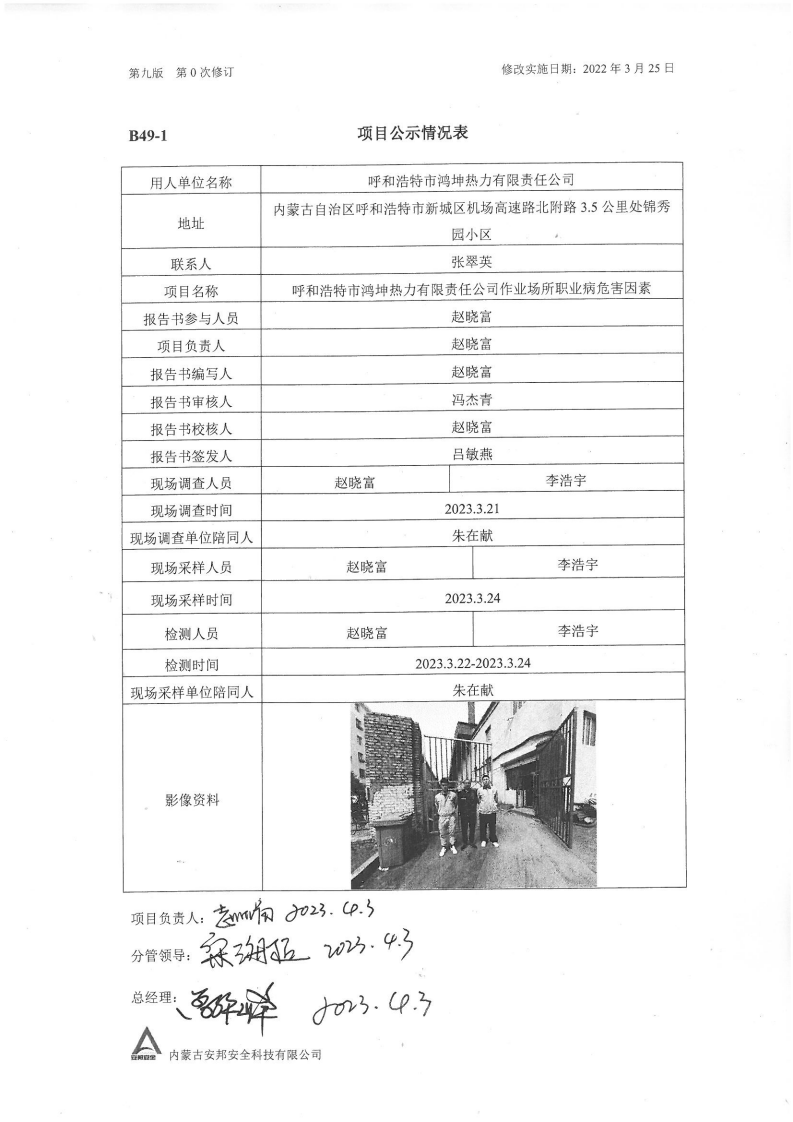 第九版 第0次修订 修改实施日期：2022年3月25日
B49-1 项目公示情况表
用人单位名称 呼和浩特市鸿坤热力有限责任公司
地址 内蒙古自治区呼和浩特市新城区机场高速路北附路3.5公里处锦秀
园小区
联系人 张翠英
项目名称 呼和浩特市鸿坤热力有限责任公司作业场所职业病危害因素
报告书参与人员 赵晓富
项目负责人 赵晓富
报告书编写人 赵晓富
报告书审核人 冯杰青
报告书校核人 赵晓富
报告书签发人 吕敏燕
现场调查人员 赵晓富 李浩宇
现场调查时间 2023.3.21
现场调查单位陪同人 朱在献
现场采样人员 赵晓富 李浩宇
现场采样时间 2023.3.24
检测人员 赵晓富 李浩宇
检测时间 2023.3.22-2023.3.24
现场采样单位陪同人 朱在献
影像资料
项目负责人： 2023.4.3
分管领导： 2023.4.3
总经理： 2023.4.3
安邦安全 内蒙古安邦安全科技有限公司